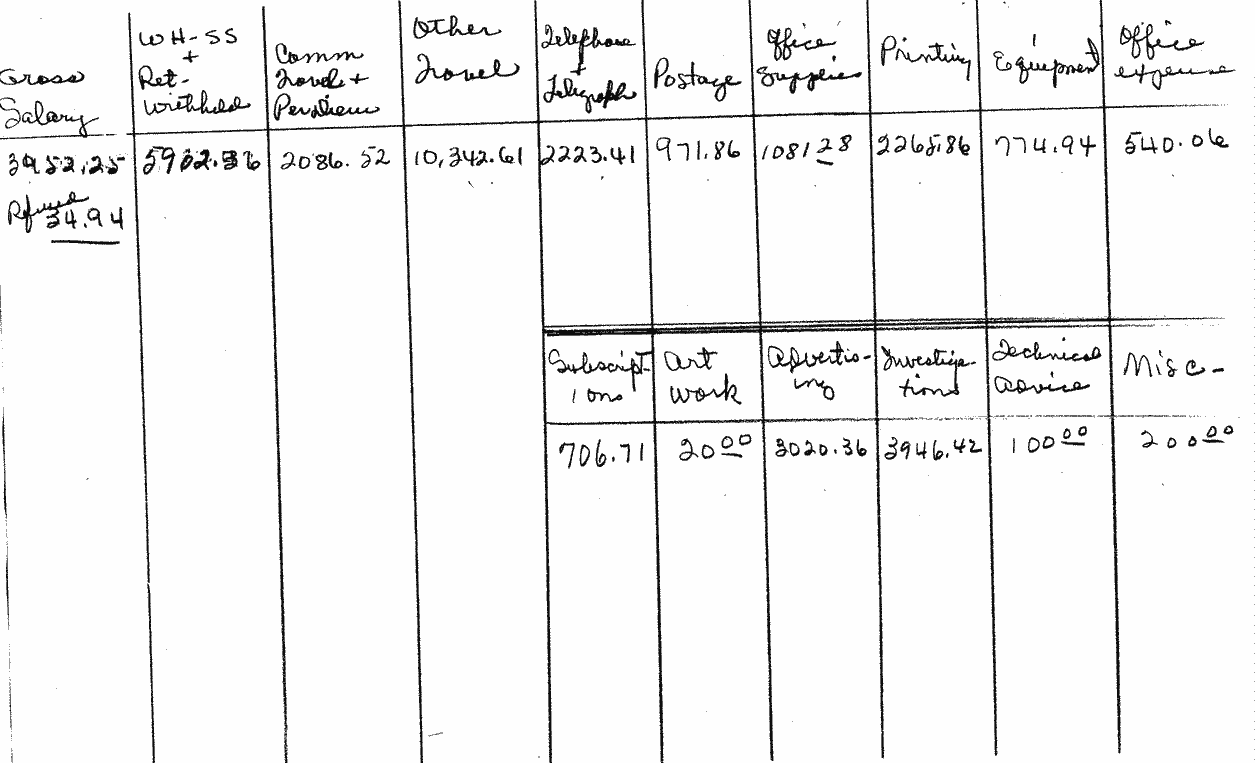 Gross Salary
WH-SS + Ret- Withheld
Comm Travel + Perdiem
Other Travel
Telephone + Telegraph
Postage
Office Supplies
Printing
Equipment
Office expense
2086.52
10,342.61
2223.41
971.86
1081 28
2265.86
774.94
540.06
Refund
34.94
Subscript-
ions
Art
work
Advertis-
ing
Investiga-
tions
Technical
advice
Misc-
706.71
20 00
3020.36
3946.42
100 00
200 00